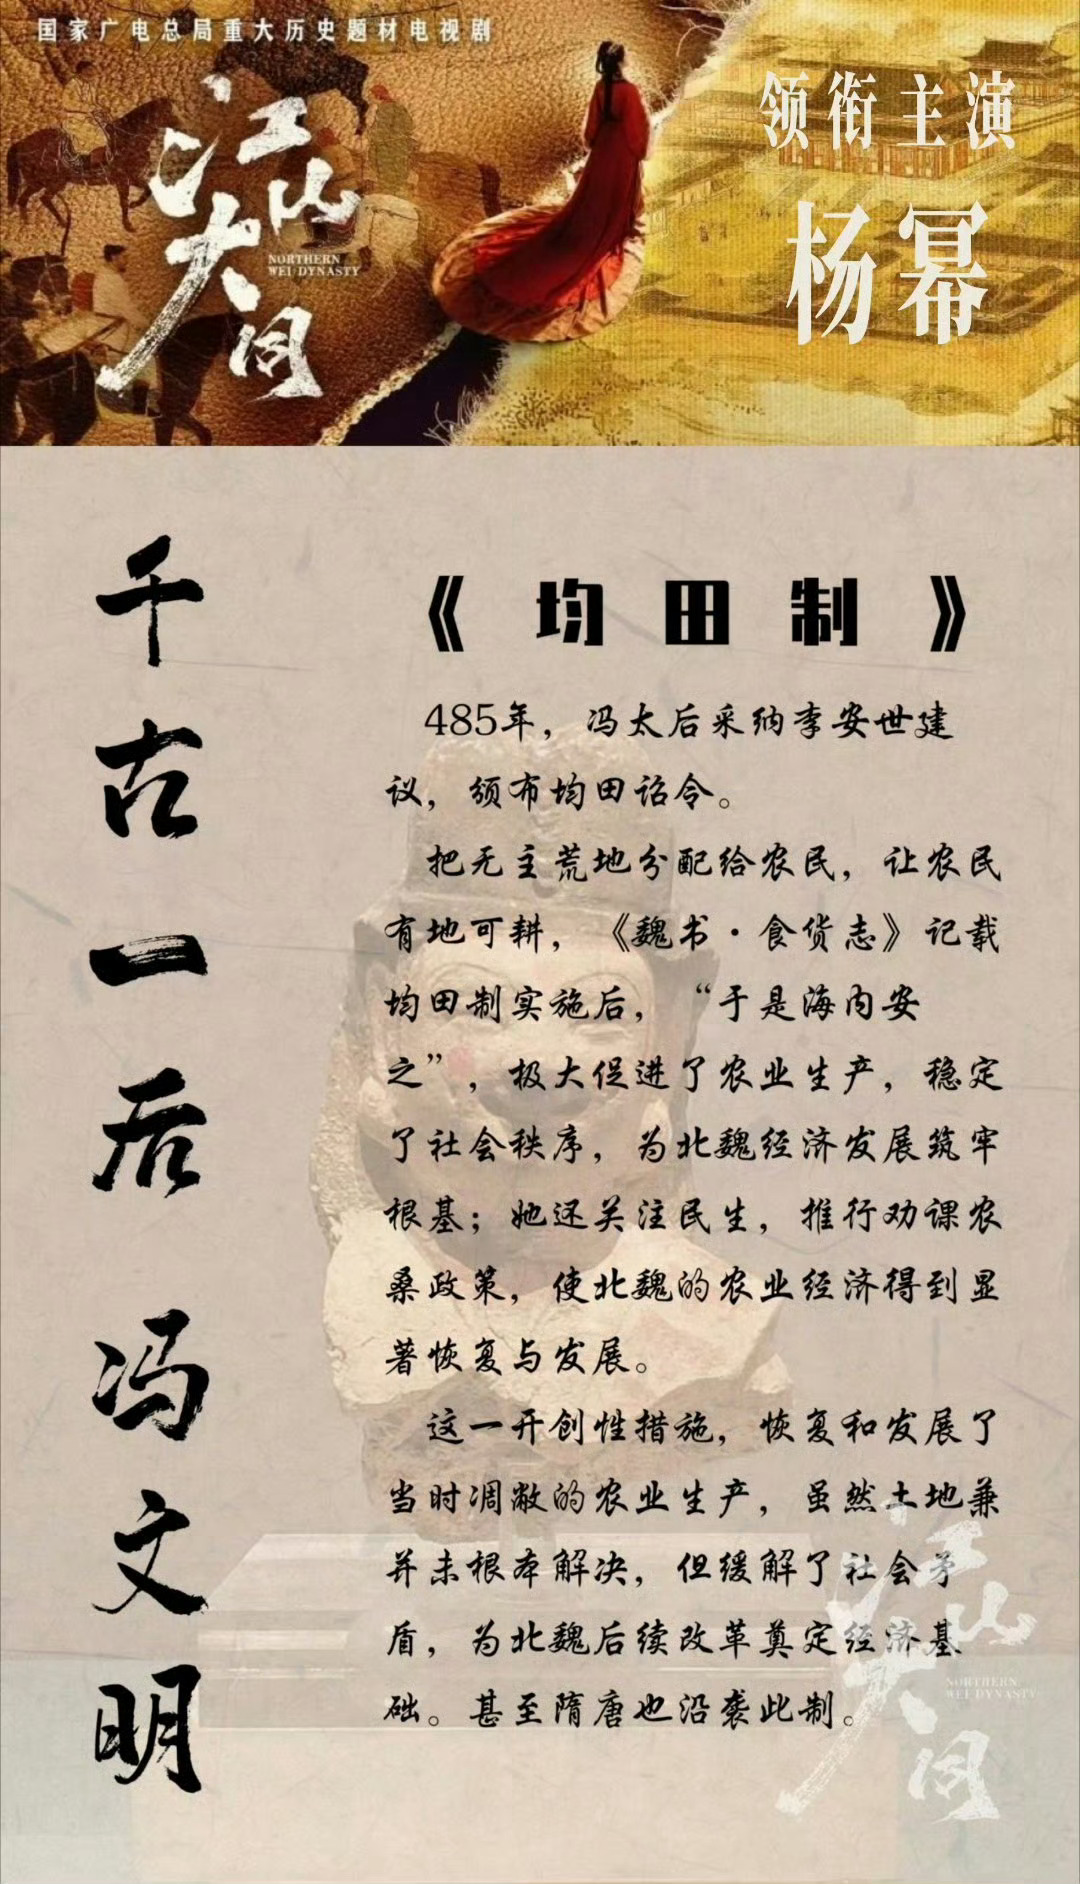 国家广电总局重大历史题材电视剧
江山大同
NORTHERN
WEI DYNASTY
领衔主演
杨幂
千古一后冯文明
《均田制》
485年，冯太后采纳李安世建
议，颁布均田诏令。
把无主荒地分配给农民，让农民
有地可耕，《魏书·食货志》记载
均田制实施后，“于是海内安
之”，极大促进了农业生产，稳定
了社会秩序，为北魏经济发展筑牢
根基；她还关注民生，推行劝课农
桑政策，使北魏的农业经济得到显
著恢复与发展。
这一开创性措施，恢复和发展了
当时凋敝的农业生产，虽然土地兼
并未根本解决，但缓解了社会矛
盾，为北魏后续改革奠定经济基
础。甚至隋唐也沿袭此制。
江山大同
NORTHERN
WEI DYNASTY